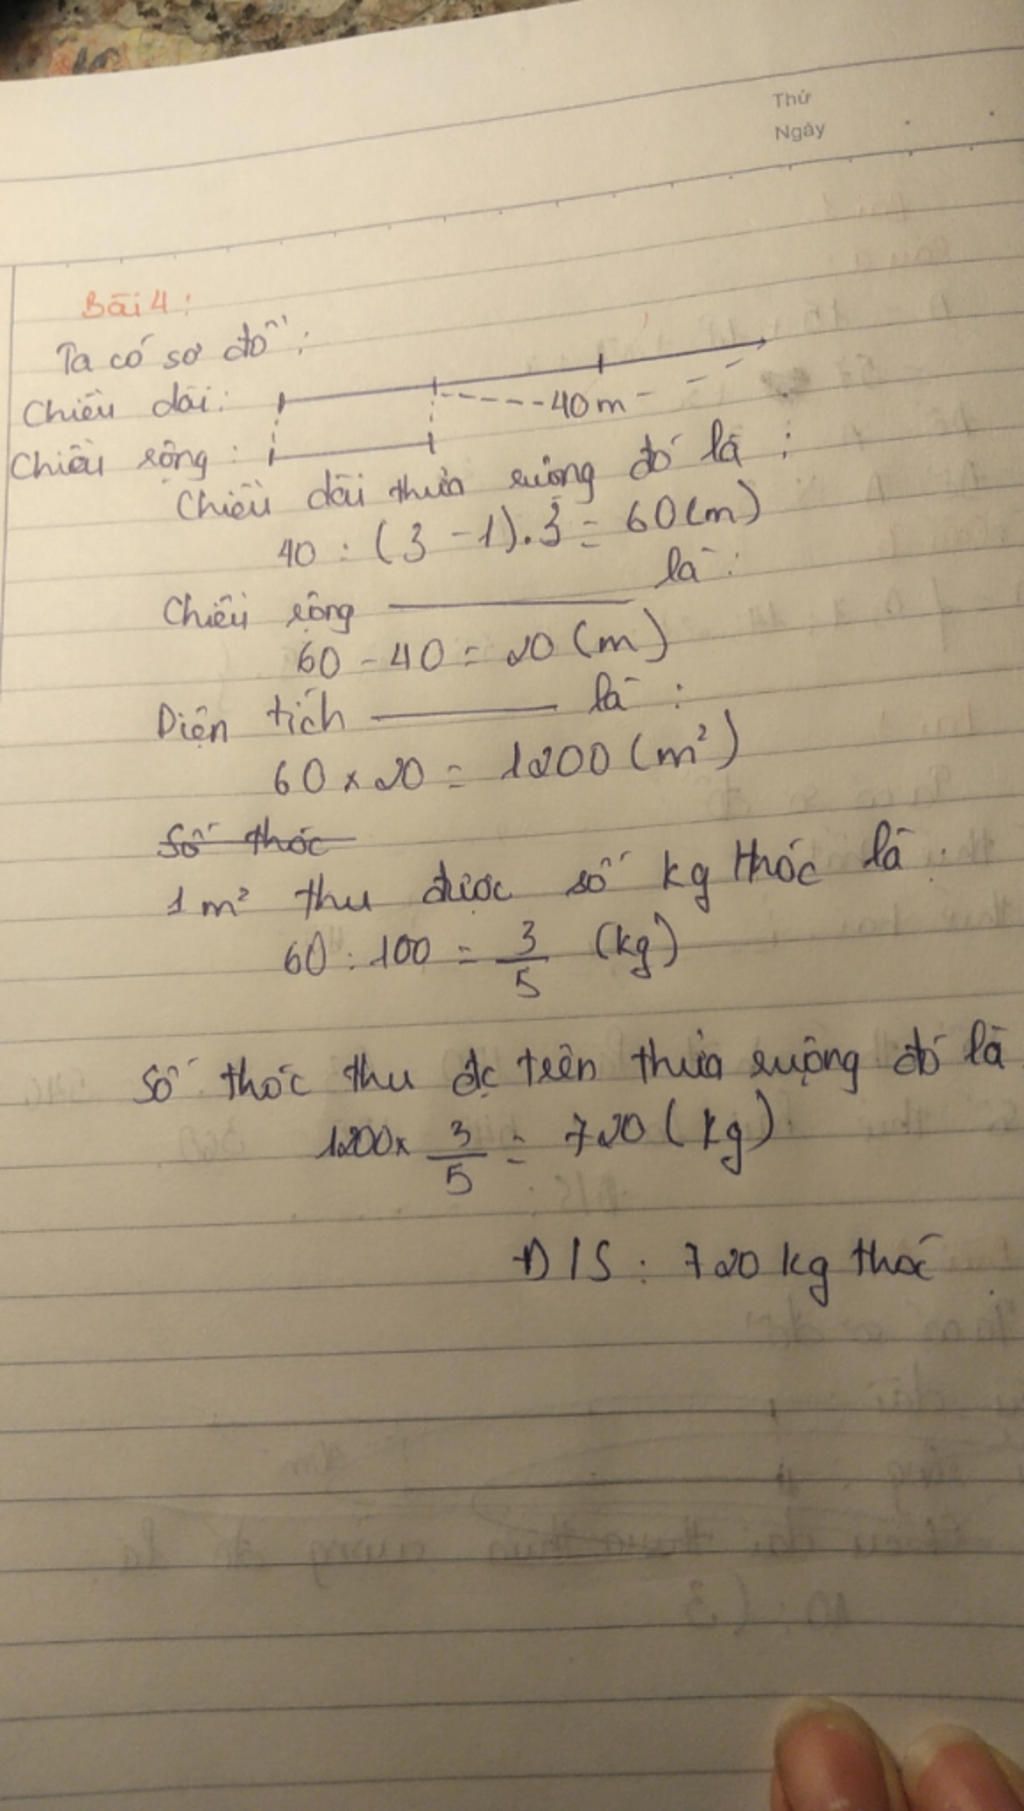 Thứ
Ngày
Bài 4:
Ta có sơ đồ:
Chiều dài:
40m
Chiều rộng:
Chiều dài thửa ruộng đó là:
40 : (3 - 1).3 = 60(m)
Chiều rộng ——— là:
60 - 40 = 20 (m)
Diện tích ——— là:
60 x 20 = 1200 (m²)
Số thóc
1 m² thu được số kg thóc là:
60 : 100 = 3/5 (kg)
Số thóc thu đc trên thửa ruộng đó là
1200x 3/5 = 720 (kg)
Đ/S: 720 kg thóc